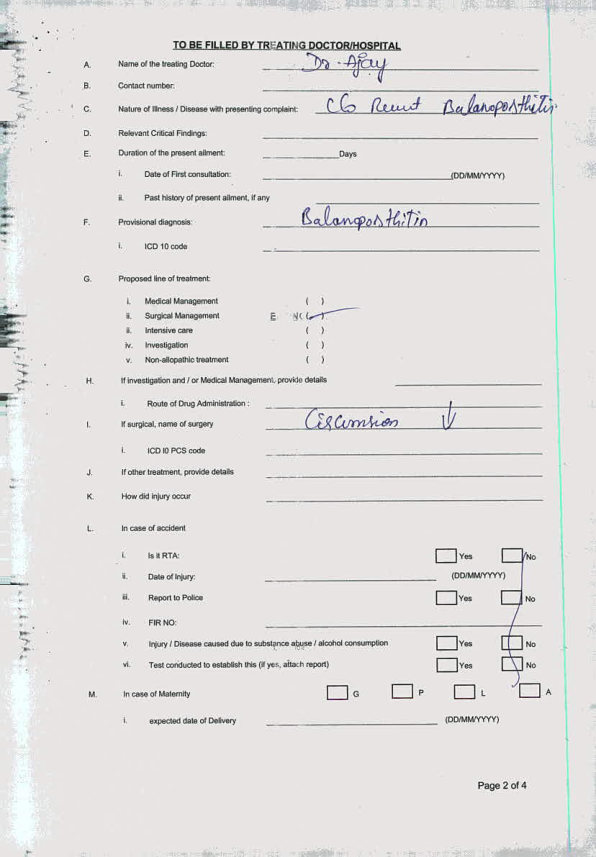 TO BE FILLED BY TREATING DOCTOR/HOSPITAL
A. Name of the treating Doctor: Dr. Ajay
B. Contact number:
C. Nature of Illness / Disease with presenting complaint: C/o Balanoposthitis
D. Relevant Critical Findings:
E. Duration of the present ailment: Days
i. Date of First consultation: (DD/MM/YYYY)
ii. Past history of present ailment, if any
F. Provisional diagnosis: Balanoposthitis
i. ICD 10 code
G. Proposed line of treatment:
i. Medical Management ( )
ii. Surgical Management ( )
ii. Intensive care ( )
iv. Investigation ( )
v. Non-allopathic treatment ( )
H. If investigation and / or Medical Management, provide details
i. Route of Drug Administration :
I. If surgical, name of surgery ↓
i. ICD I0 PCS code
J. If other treatment, provide details
K. How did injury occur
L. In case of accident
i. Is it RTA: Yes No
ii. Date of Injury: (DD/MM/YYYY)
iii. Report to Police Yes No
iv. FIR NO:
v. Injury / Disease caused due to substance abuse / alcohol consumption Yes No
vi. Test conducted to establish this (if yes, attach report) Yes No
M. In case of Maternity G P L A
i. expected date of Delivery (DD/MM/YYYY)
Page 2 of 4